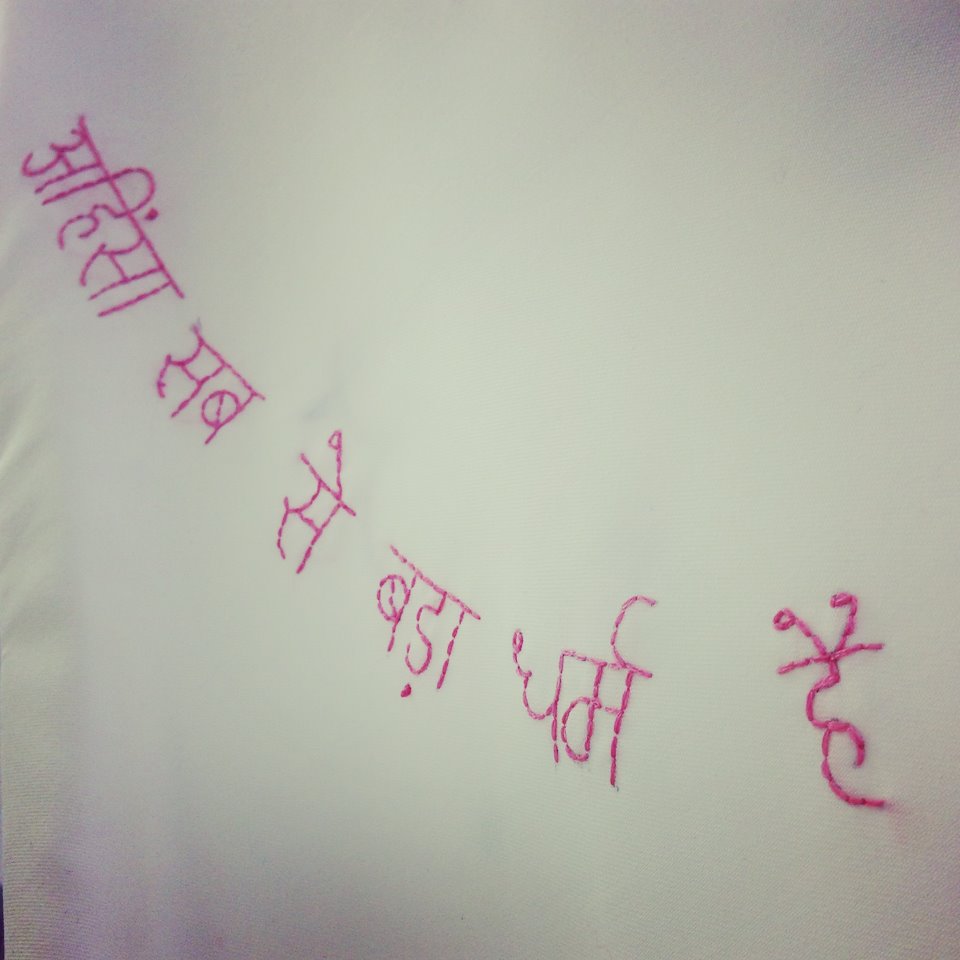 अहिंसा सब से बड़ा धर्म है